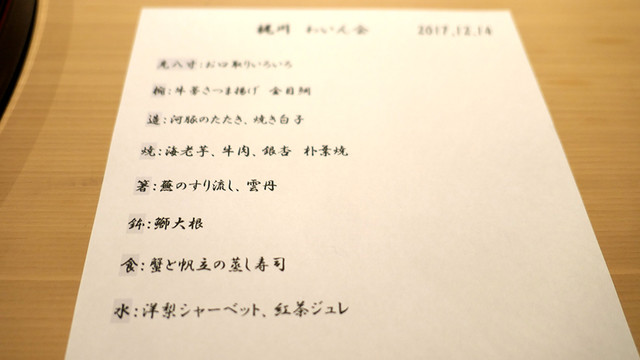 梶川 わいん会 2017.12.14
先八寸:お口取りいろいろ
椀:牛蒡さつま揚げ 金目鯛
造:河豚のたたき、焼き白子
焼:海老芋、牛肉、銀杏 朴葉焼
箸:蕪のすり流し、雲丹
鉢:鰤大根
食:蟹と帆立の蒸し寿司
水:洋梨シャーベット、紅茶ジュレ